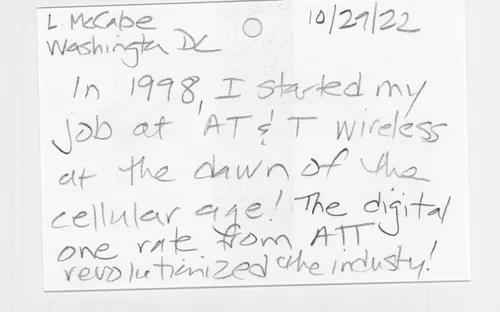 L McCabe
Washington DC
10/29/22
In 1998, I started my
job at AT&T wireless
at the dawn of the
cellular age! The digital
one rate from ATT
revolutionized the industy!